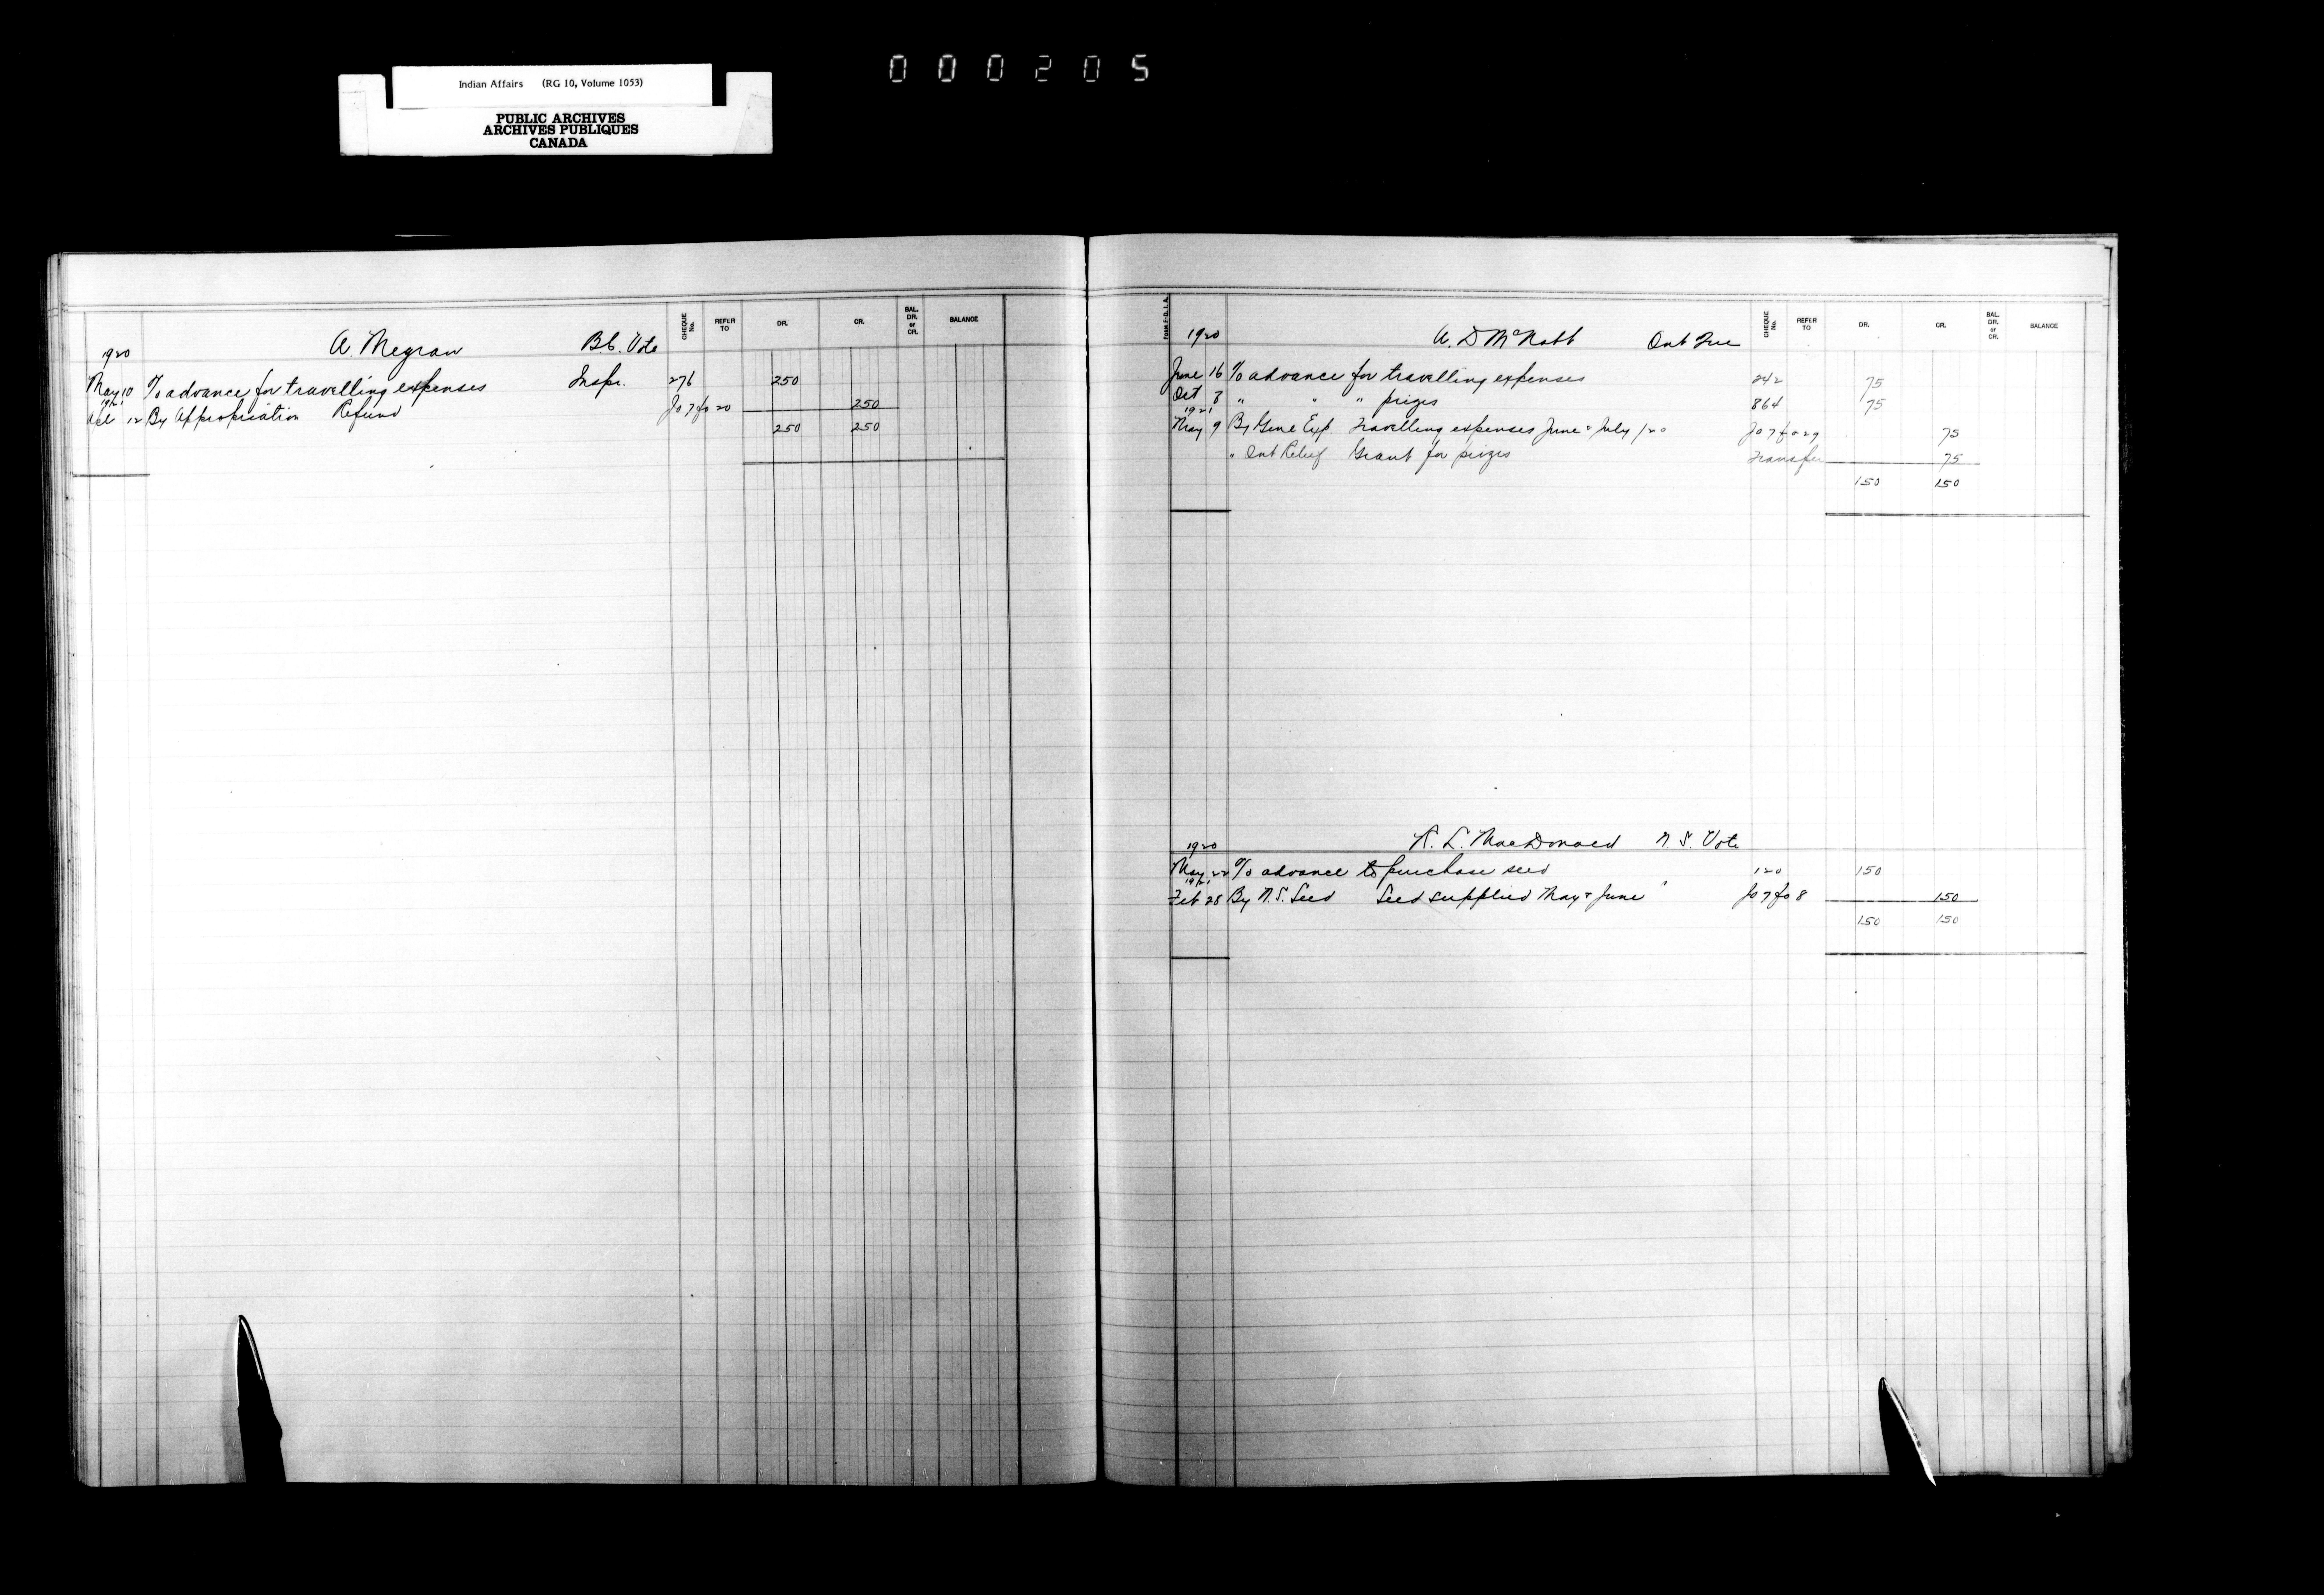 Indian Affairs (RG 10, Volume 1053)
PUBLIC ARCHIVES
ARCHIVES PUBLIQUES
CANADA
000205
CHEQUE No. REFER TO DR. CR. BAL. DR. or CR. BALANCE
1920 A. Megraw B.C. Vote
May 10 To advance for travelling expenses Inspr. 276 250
1921
12 By Appropriation Refund Jo 7 fo 20 250
250 250
CHEQUE No. REFER TO DR. CR. BAL. DR. or CR. BALANCE
1920 A. D McNabb Ont
June 16 To advance for travelling expenses 242 75
Oct 8 " " " prizes 864 75
1921
May 9 By Gene Exp. Travelling expenses June & July /20 Jo 7 fo 29 75
" Ont Relief Grant for prizes Transfer 75
150 150
1920 R. L. MacDonald N. S. Vote
May 22 To advance to purchase seed 120 150
1921
Feb 28 By N.S. Seed Seed supplied May & June " Jo 7 fo 8 150
150 150